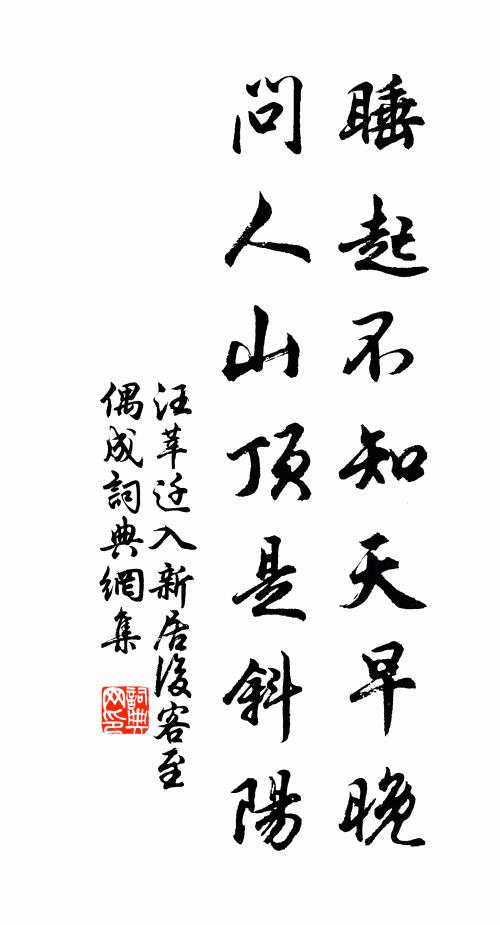 睡起不知天早晚
問人山頂是斜陽
汪莘迁入新居後客至
偶成詞典網集
詞典
网印